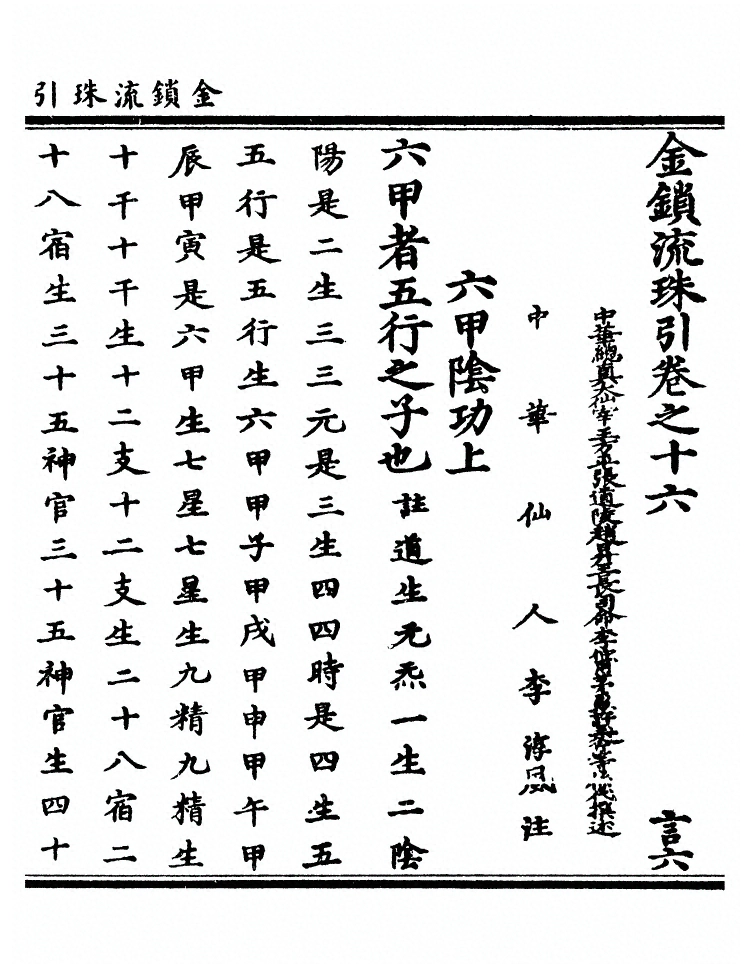 金鎖流珠引
金鎖流珠引卷之十六 言六
中華總真大仙宰王方平張道陵趙昇王長司命李仲甫茅盈許等代撰述
中華仙人李淳風注
六甲陰功上
六甲者五行之子也註道生元炁一生二陰
陽是二生三三元是三生四四時是四生五
五行是五行生六甲甲子甲戌甲申甲午甲
辰甲寅是六甲生七星七星生九精九精生
十千十千生十二支十二支生二十八宿二
十八宿生三十五神官三十五神官生四十